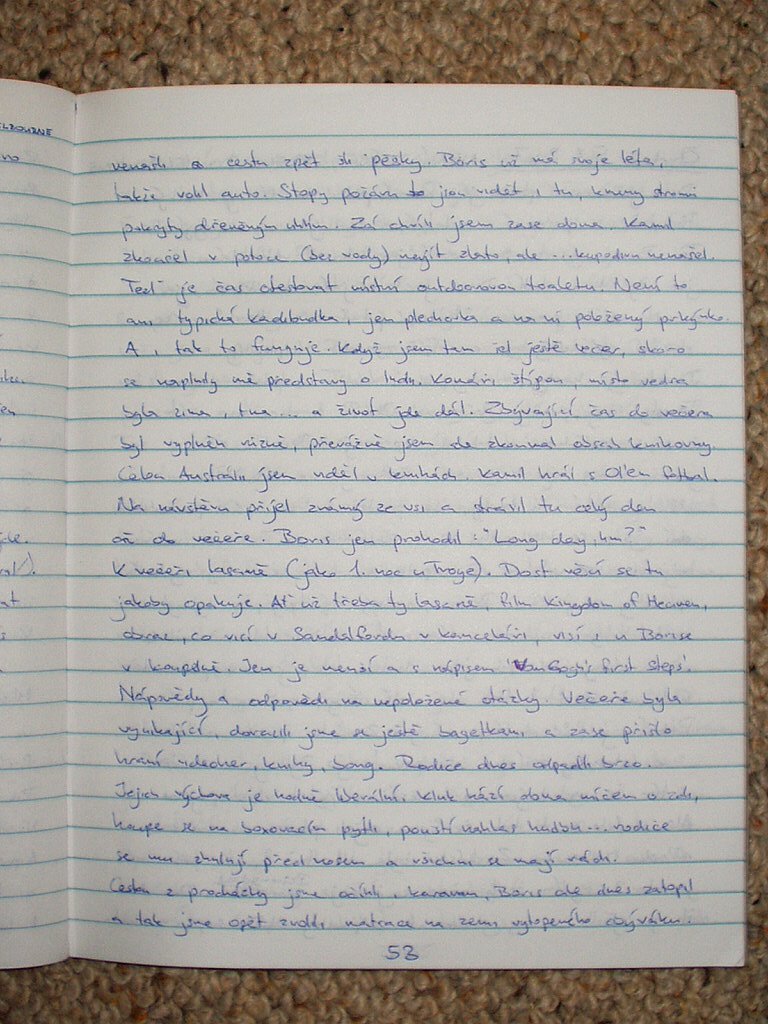 ELBOURNE
no
nenašli a cestu zpět šli pěšky. Boris už má svoje léta,
takže volil auto. Stopy požáru jsou vidět i tu, kmeny stromů
pokryty dřevěným uhlím. Za chvíli jsem zase doma. Kamil
zkoušel v potoce (bez vody) najít zlato, ale ... kupodivu nenašel.
Teď je čas otestovat místní outdoorovou toaletu. Není to
ani typická kadibudka, jen plechovka a na ní položený prkýnko.
A, tak to funguje. Když jsem tam šel ještě večer, skoro
se naplnily mé představy o hadu. Komáři štípou, místo vedra
byla zima, tma ... a život jde dál. Zbývající čas do večera
byl vyplněn různě, převážně jsem zde zkoumal obsah knihovny.
Celou Austrálii jsem viděl v knihách. Kamil hrál s Ol'em fotbal.
Na návštěvu přijel známý ze vsi a strávil tu celý den
až do večeře. Boris jen prohodil: "Long day, hm?"
K večeři lasaně (jako 1. noc u Troye). Dost věcí se tu
jakoby opakuje. Ať už třeba ty lasaně, film Kingdom of Heaven,
obraz, co visí v Sandalfordu v kanceláři, visí i u Borise
v koupelně. Jen je menší a s nápisem 'Van Gogh's first steps'.
Nápovědy a odpovědi na nepoložené otázky. Večeře byla
vynikající, dorazili jsme se ještě bagetkami a zase přišlo
hraní všecher, knihy, bong. Rodiče dnes odpadli brzo.
Jejich výchova je hodně liberální. Kluk hází doma míčem o zeď,
houpe se na boxovacím pytli, pouští nahlas hudbu ... rodiče
se mu zhulují před nosem a všichni se mají rádi.
Cestou z procházky jsme očíhli karavan, Boris ale dnes zatopil
a tak jsme opět zvolili matrace na zemi vytopeného obýváku.
53